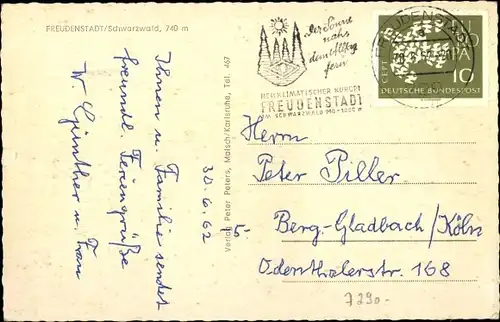 FREUDENSTADT/Schwarzwald, 740 m
Ihnen u. Familie sendet
freundl. Feriengrüße
W. Günther u. Frau
30.6.62
Verlag Peter Peters, Malsch/Karlsruhe, Tel. 467
der Sonne
nah
dem Alltag
fern
HEILKLIMATISCHER KURORT
FREUDENSTADT
IM SCHWARZWALD
FREUDENSTADT
EUROPA
CEPT
10
DEUTSCHE BUNDESPOST
Herrn
Peter Piller
5-
Berg.-Gladbach/Köln
Odenthalerstr. 168
7290-